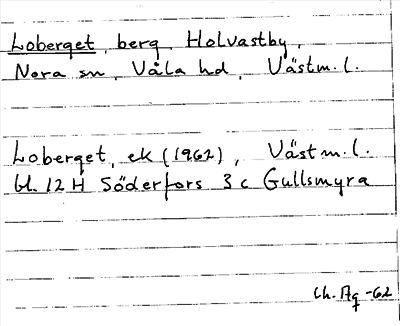 Loberget, berg, Holvastby,
Nora sn, Våla hd, Västm. l.
Loberget, ek (1962), Västm. l.
bl. 12 H Söderfors 3 c Gullsmyra
Ch. Aq -62